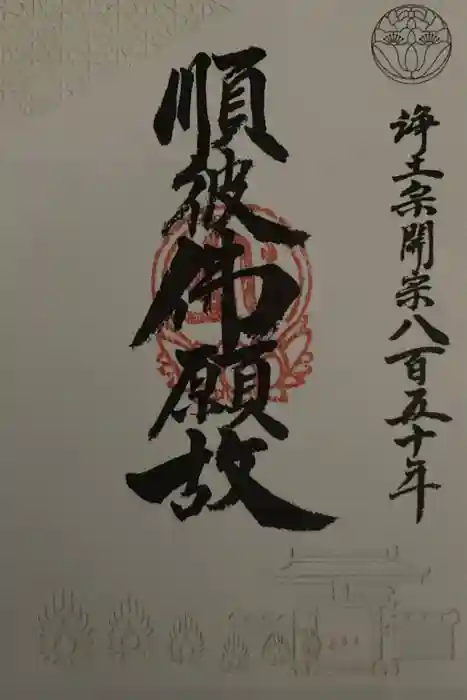 浄土宗開宗八百五十年
順彼佛願故